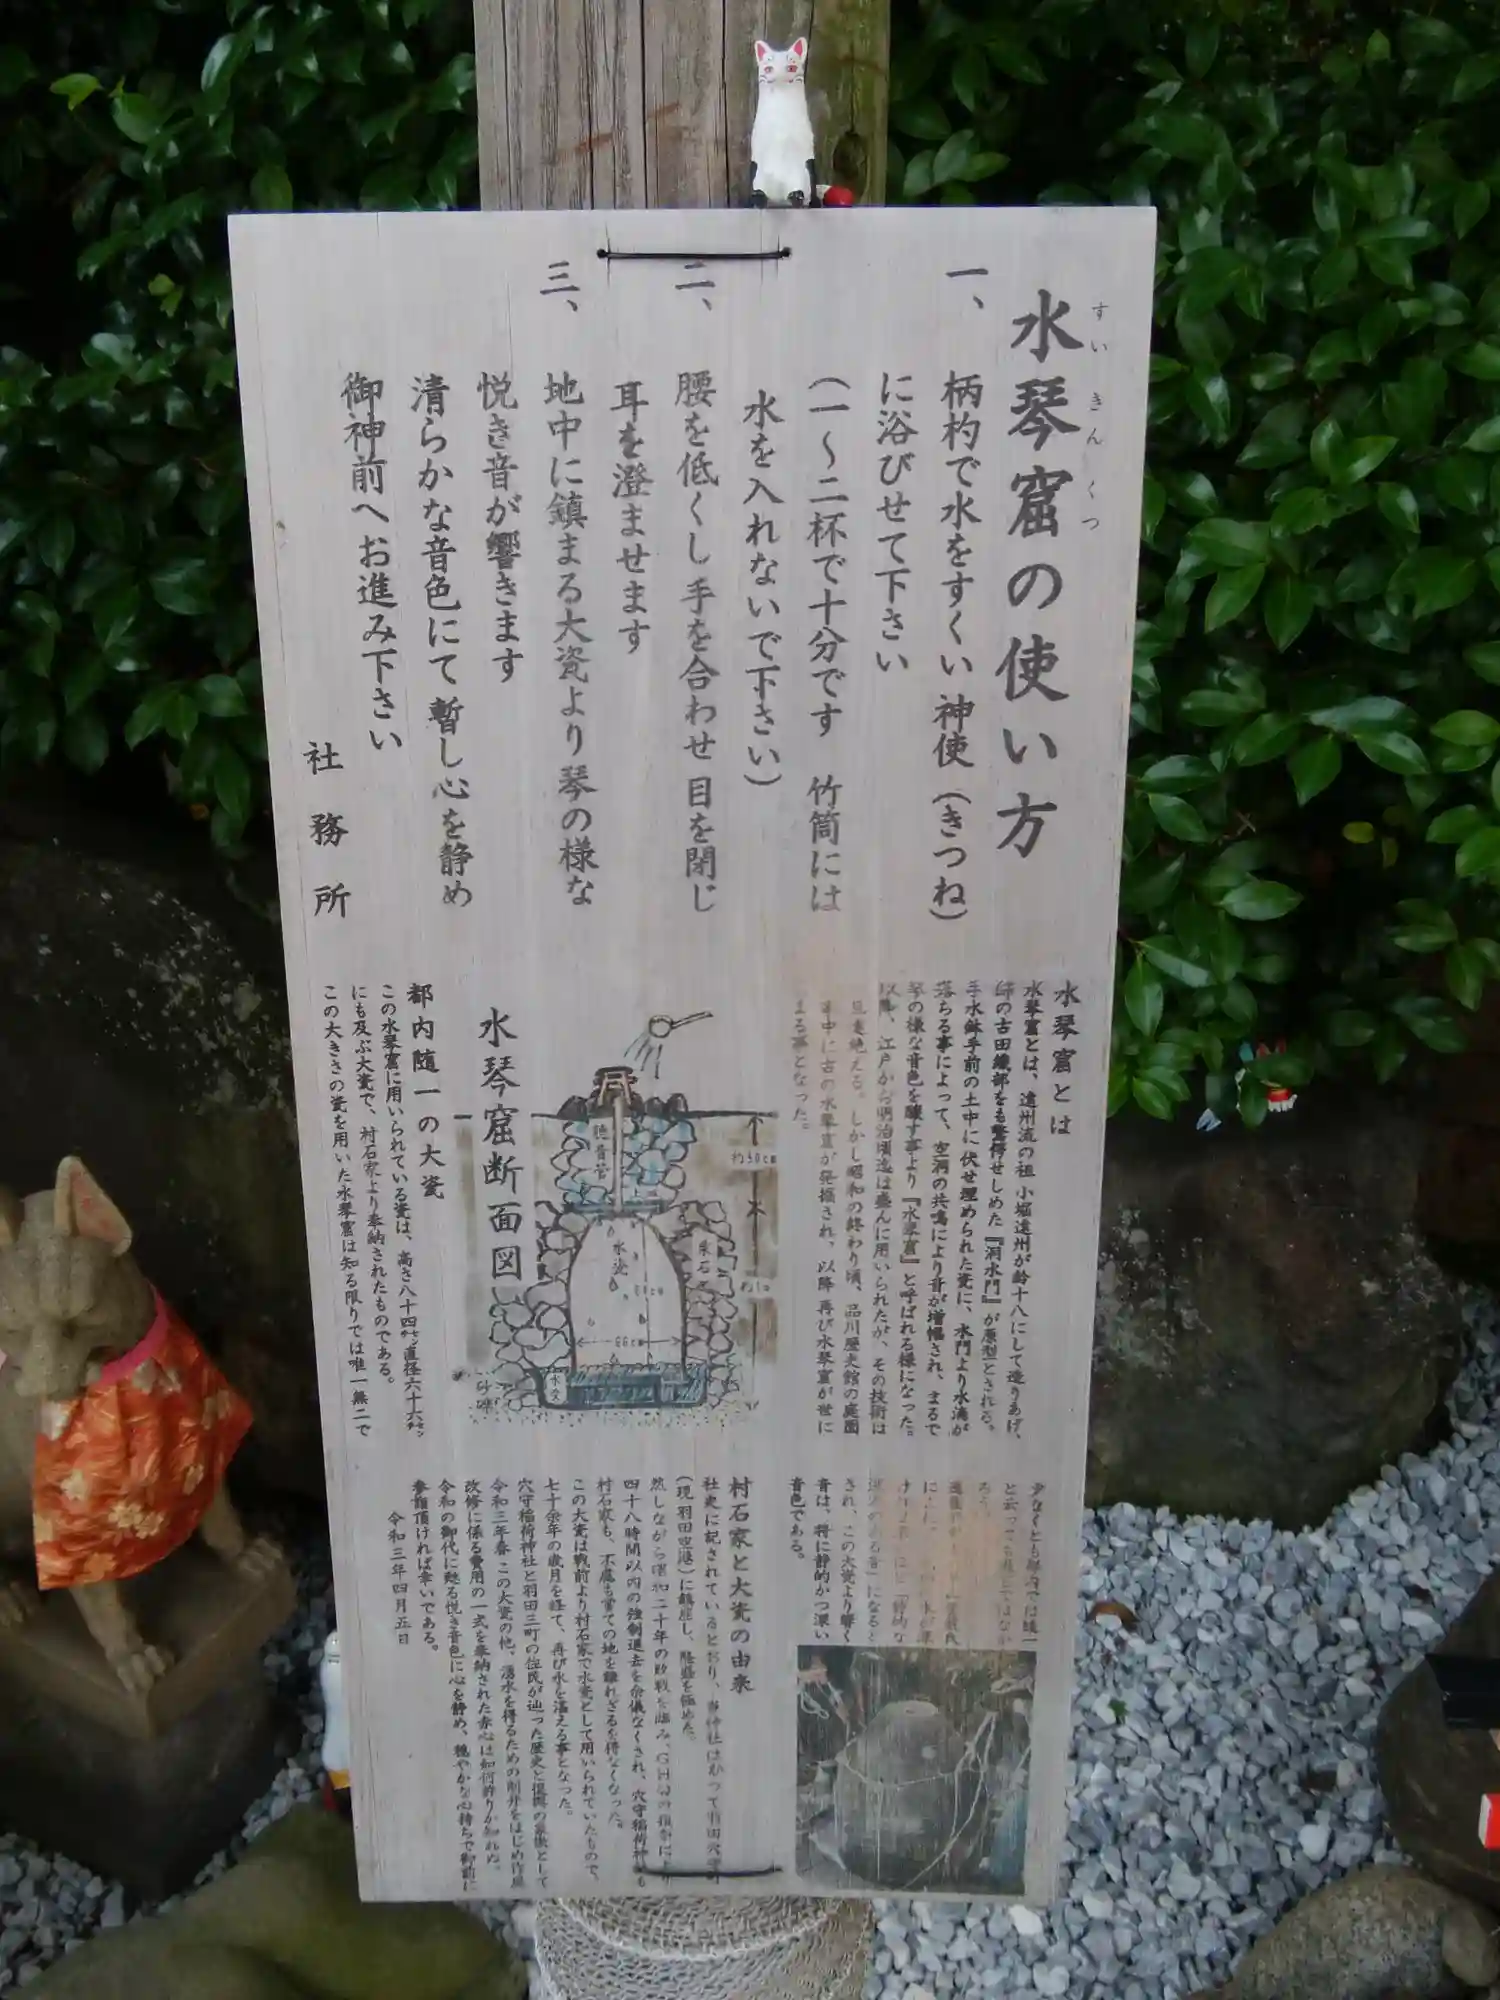 水琴窟の使い方
すいきんくつ
一、柄杓で水をすくい 神使(きつね)
に浴びせて下さい
(一〜二杯で十分です 竹筒には
水を入れないで下さい)
二、腰を低くし 手を合わせ 目を閉じ
耳を澄ませます
三、地中に鎮まる大瓷より 琴の様な
悦き音が響きます
清らかな音色にて 暫し心を静め
御神前へお進み下さい
社務所
水琴窟とは
水琴窟とは、遠州流の祖 小堀遠州が齢十八にして造りあげ、
師の古田織部をも驚愕せしめた『洞水門』が原型とされる。
手水鉢手前の土中に伏せ埋められた瓷に、水門より水滴が
落ちる事によって、空洞の共鳴により音が増幅され、まるで
琴の様な音色を醸す事より『水琴窟』と呼ばれる様になった。
以降、江戸から明治頃迄は盛んに用いられたが、その技術は
絶える。しかし昭和の終わり頃、品川歴史館の庭園
中に古の水琴窟が発掘され、以降 再び水琴窟が世に
まる事となった。
水琴窟断面図
聴音管
約50cm
水滴
栗石
約1m
84cm
66cm
水受
砂礫
都内随一の大瓷
この水琴窟に用いられている瓷は、高さ八十四㌢直径六十六㌢
にも及ぶ大瓷で、村石家より奉納されたものである。
この大きさの瓷を用いた水琴窟は知る限りでは唯一無二で
少なくとも都内では随一
と云って
され、この大瓷より響く
音は、将に静的かつ深い
音色である。
村石家と大瓷の由来
社史に記されているとおり、当神社はかつて羽田穴守町
(現 羽田空港)に鎮座し、隆盛を極めた。
然しながら昭和二十年の敗戦を臨み、GHQの指令により
四十八時間以内の強制退去を余儀なくされ、穴守稲荷神社も
村石家も、不慮も当ての地を離れざるを得なくなった。
この大瓷は戦前より村石家で水瓷として用いられていたもので、
七十余年の歳月を経て、再び水を湛える事となった。
穴守稲荷神社と羽田三町の住民が辿った歴史と復興の象徴として
令和三年春 この大瓷の他、湧水を得るための削井をはじめ作庭
改修に係る費用の一式を奉納された赤心は如何許りか知れぬ。
令和の御代に甦る悦き音色に心を静め、穏やかな心持ちで御前に
参詣頂ければ幸いである。
令和三年四月五日